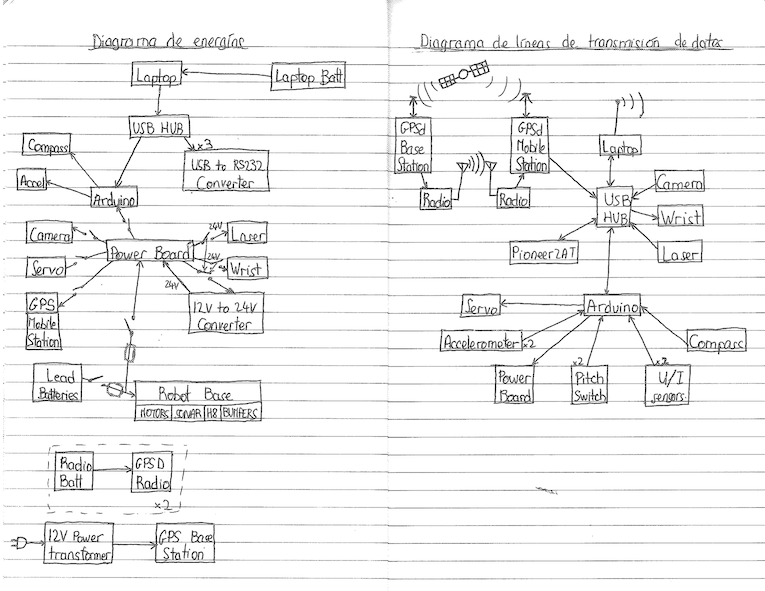 Diagrama de energías
Laptop
Laptop Batt
USB HUB
Compass
x3
USB to RS232
Converter
Accel
Arduino
Camera
24V
Laser
Power Board
24V
Servo
Wrist
24V
GPS
Mobile
Station
12V to 24V
Converter
Lead
Batteries
Robot Base
MOTORS SONAR H8 BUMPERS
Radio
Batt
GPSD
Radio
x2
12V Power
transformer
GPS Base
Station
Diagrama de líneas de transmisión de datos
GPSd
Base
Station
GPSd
Mobile
Station
Laptop
Radio
Radio
USB
HUB
Camera
Wrist
Pioneer2AT
Laser
Servo
Arduino
Accelerometer x2
Compass
Power
Board
x2
Pitch
Switch
U/I
sensors